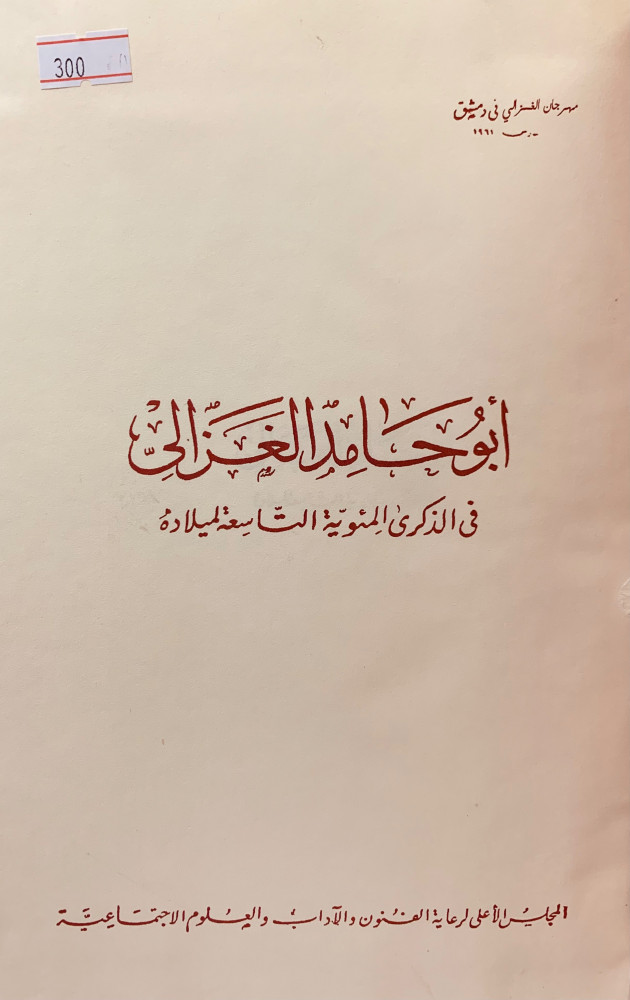 300
مهرجان الغزالي فى دمشق
مارس ١٩٦١
أبوُ حَامِدِ الغَزَّالِيّ
فى الذكرىٰ المِئويّة التّاسِعة لميلادهُ
المجلِسُ الأعلى لرعاية الفنُون والآدابْ والعِلُوم الاجتمَاعيَّة